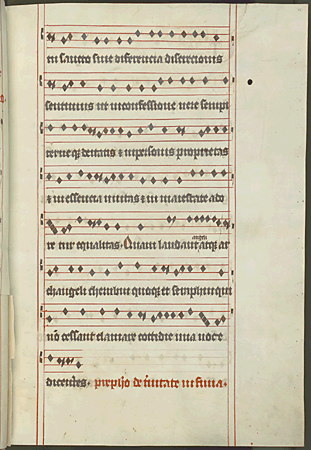 ni sancto sine differencia discrecionis
sentimus vt in confessione vere sempi
terneque deitatis et in personis proprietas
et in essencia vnitas et in maiestate ado
re tur equalitas. Quam laudant angeli atque ar
changeli cherubin quoque et seraphin qui
nō cessant clamare cottidie vna voce
dicentes. prephō de tinitate in fima.